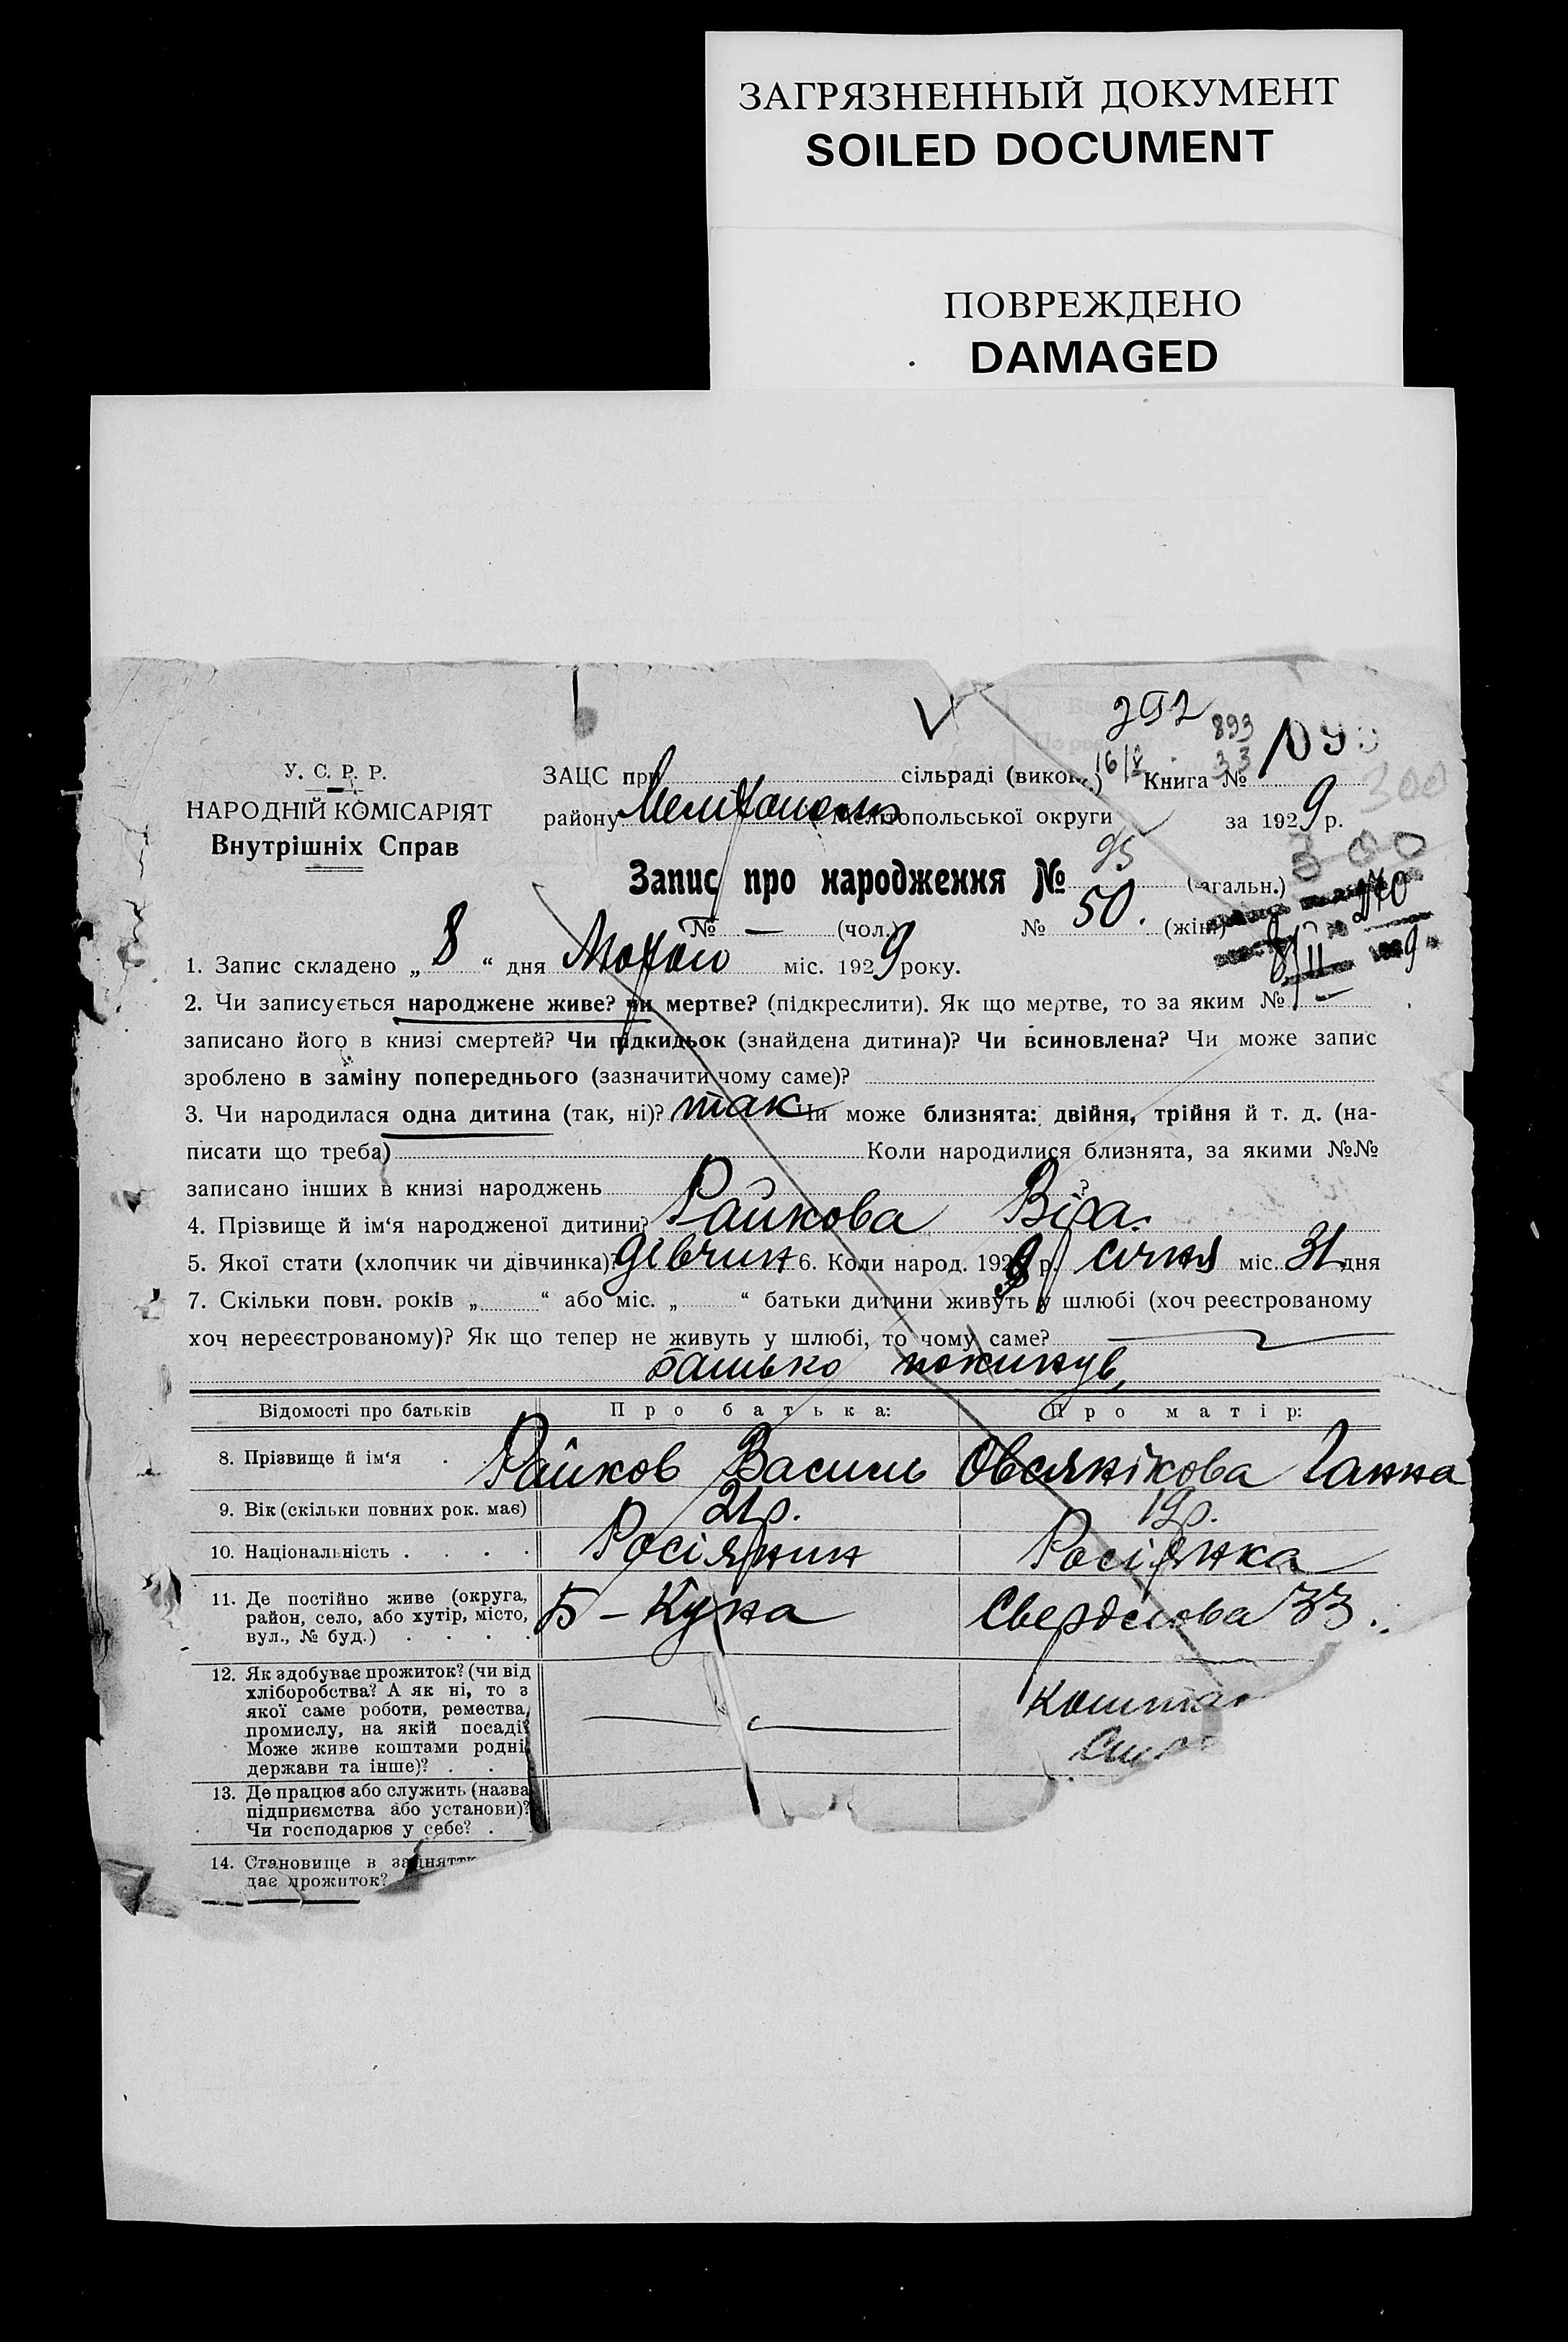 ЗАГРЯЗНЕННЫЙ ДОКУМЕНТ
SOILED DOCUMENT
ПОВРЕЖДЕНО
DAMAGED
893
33
16/X
У. С. Р. Р.
НАРОДНІЙ КОМІСАРІЯТ
Внутрішніх Справ
ЗАЦС при сільраді (викон.) Книга №
300
району Мелітополь Мелітопольської округи за 1929 р.
95 300
Запис про народження № (загальн.)
270
№ — (чол.) № 50. (жін.)
8/II 9
1. Запис складено „ 8 “ дня Лютого міс. 1929 року.
2. Чи записується народжене живе? чи мертве? (підкреслити). Як що мертве, то за яким № —
записано його в книзі смертей? Чи підкидьок (знайдена дитина)? Чи всиновлена? Чи може запис
зроблено в заміну попереднього (зазначити чому саме)?
3. Чи народилася одна дитина (так, ні)? так Чи може близнята: двійня, трійня й т. д. (на-
писати що треба) Коли народилися близнята, за якими №№
записано інших в книзі народжень ?
4. Прізвище й ім‘я народженої дитини? Райкова Віра.
5. Якої стати (хлопчик чи дівчинка)? дівчина 6. Коли народ. 1929 р. січня міс. 31 дня
7. Скільки повн. років „ “ або міс. „ “ батьки дитини живуть у шлюбі (хоч реєстрованому
хоч нереєстрованому)? Як що тепер не живуть у шлюбі, то чому саме?
батько покинув,
Відомості про батьків Про батька: Про матір:
8. Прізвище й ім‘я Райков Василь Овсянікова Ганна
9. Вік (скільки повних рок. має) 21р. 19р.
10. Національність Росіянин Росіянка
11. Де постійно живе (округа,
район, село, або хутір, місто, Б-Куна Свердлова 33.
вул., № буд.)
12. Як здобуває прожиток? (чи від
хліборобства? А як ні, то з
якої саме роботи, ремества,
промислу, на якій посаді?
Може живе коштами родні,
держави та інше)?
13. Де працює або служить (назва
підприємства або установи)?
Чи господарює у себе?
14. Становище в занятт
дає прожиток?